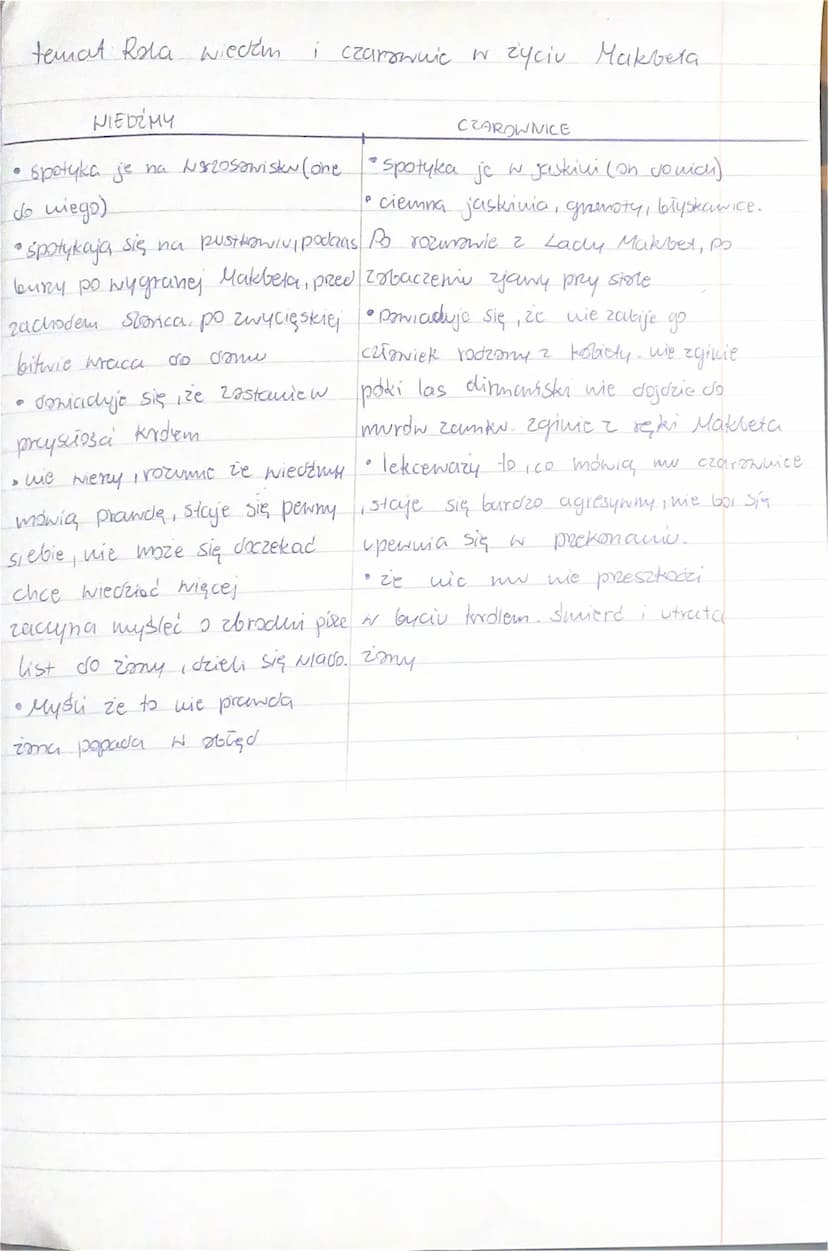 temat Rola wiedźm i czarownic w życiu Makbeta
WIEDŹMY
CZAROWNICE
• spotyka je na wrzosowisku (one
do niego)
• spotykają się na pustkowiu, podczas
burzy po wygranej Makbeta, przed
zachodem słońca. po zwycięskiej
bitwie wraca do domu
• dowiaduje się, że zostanie w
przyszłości królem
• nie wierzy, rozumie że wiedźmy
mówią prawdę, staje się pewny
siebie, nie może się doczekać
chce wiedzieć więcej
zaczyna myśleć o zbrodni pisze
list do żony, dzieli się wiado.
• Myśli że to nie prawda
żona popada w obłęd
• spotyka je w jaskini (on do nich)
• ciemna jaskinia, grzmoty, błyskawice.
Po rozmowie z Lady Makbet, po
zobaczeniu zjawy przy stole
• dowiaduje się, że nie zabije go
człowiek rodzony z kobiety. nie zginie
póki las dirnamski nie dojdzie do
murów zamku. zginie z ręki Makbeta
• lekceważy to, co mówią mu czarownice
, staje się bardzo agresywny, nie boi się
upewnia się w przekonaniu.
• że nic mu nie przeszkodzi
w byciu królem. śmierć i utrata
żony